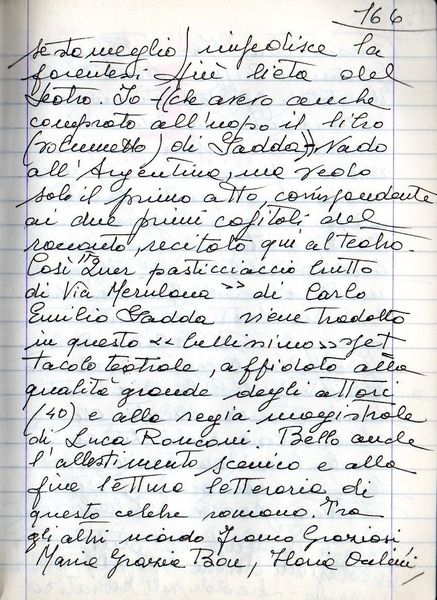 166
sto meglio) impedisce la
parentesi più lieta del
teatro. Io (che avevo anche
comprato all'uopo il libro
(volumetto) di Gadda) vado
all'Argentina, ma vedo
solo il primo atto, corrispondente
ai due primi capitoli del
romanzo, recitato qui al teatro.
Così "Quer pasticciaccio brutto
di Via Merulana" di Carlo
Emilio Gadda viene tradotto
in questo «bellissimo» spet
tacolo teatrale, affidato alla
qualità grande degli attori
(40) e alla regia magistrale
di Luca Ronconi. Bello anche
l'allestimento scenico e alla
fine lettura letteraria di
questo celebre romanzo. Tra
gli altri ricordo Franco Graziosi
Maria Grazia Bon, Ilaria